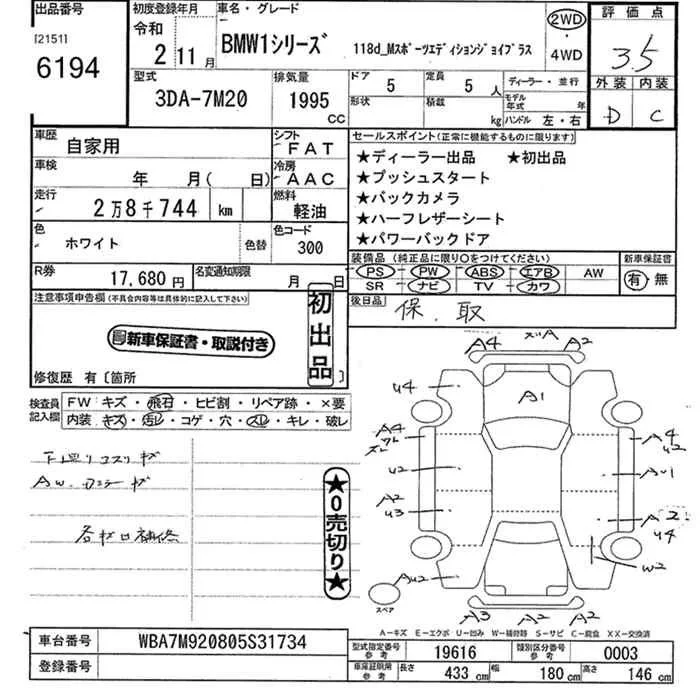 出品番号
[2151]
6194
初度登録年月
令和
2年11月
車名・グレード
BMW1シリーズ 118d_Mスポーツエディションジョイプラス
2WD
4WD
評価点
3.5
外装 内装
D C
型式
3DA-7M20
排気量
1995
CC
ドア
5
定員
5人
形状
積載
kg
ディーラー・並行
モデル年式 年
ハンドル 左・右
車歴
自家用
シフト
FAT
車検
年 月( 日)
冷房
AAC
走行
2万8千744 km
燃料
軽油
色
ホワイト
色替
色コード
300
R券
17,680円
名変通知期限
月 日
セールスポイント(正常に機能するものに限ります)
★ディーラー出品 ★初出品
★プッシュスタート
★バックカメラ
★ハーフレザーシート
★パワーバックドア
装備品(純正品に限り○をつけてください)
新車保証書
PS PW ABS エアB AW
SR ナビ TV カワ
有・無
後日品
保.取
注意事項申告欄(不具合内容等は具体的に記入して下さい)
新車保証書・取説付き
初出品
修復歴 有〔箇所 〕
検査員記入欄
FW キズ・飛石・ヒビ割・リペア跡・×要
内装 キズ・汚レ・コゲ・穴・スレ・キレ・破レ
下廻りコスリキズ
AW.カバーキズ
各キロ補修
★0売切り★
A4 A2
U4
A1
A4
U2
A4
U2
AU1
A2
U3
A2
U4
W2
AU2
スペア
A3 A2 A2
A-キズ E-エクボ U-凹み W-補修跡 S-サビ C-腐食 XX-交換済
車台番号
WBA7M920805S31734
登録番号
型式指定番号
参考
19616
類別区分番号
参考
0003
車庫証明用
参考
長さ 433cm 幅 180cm 高さ 146cm